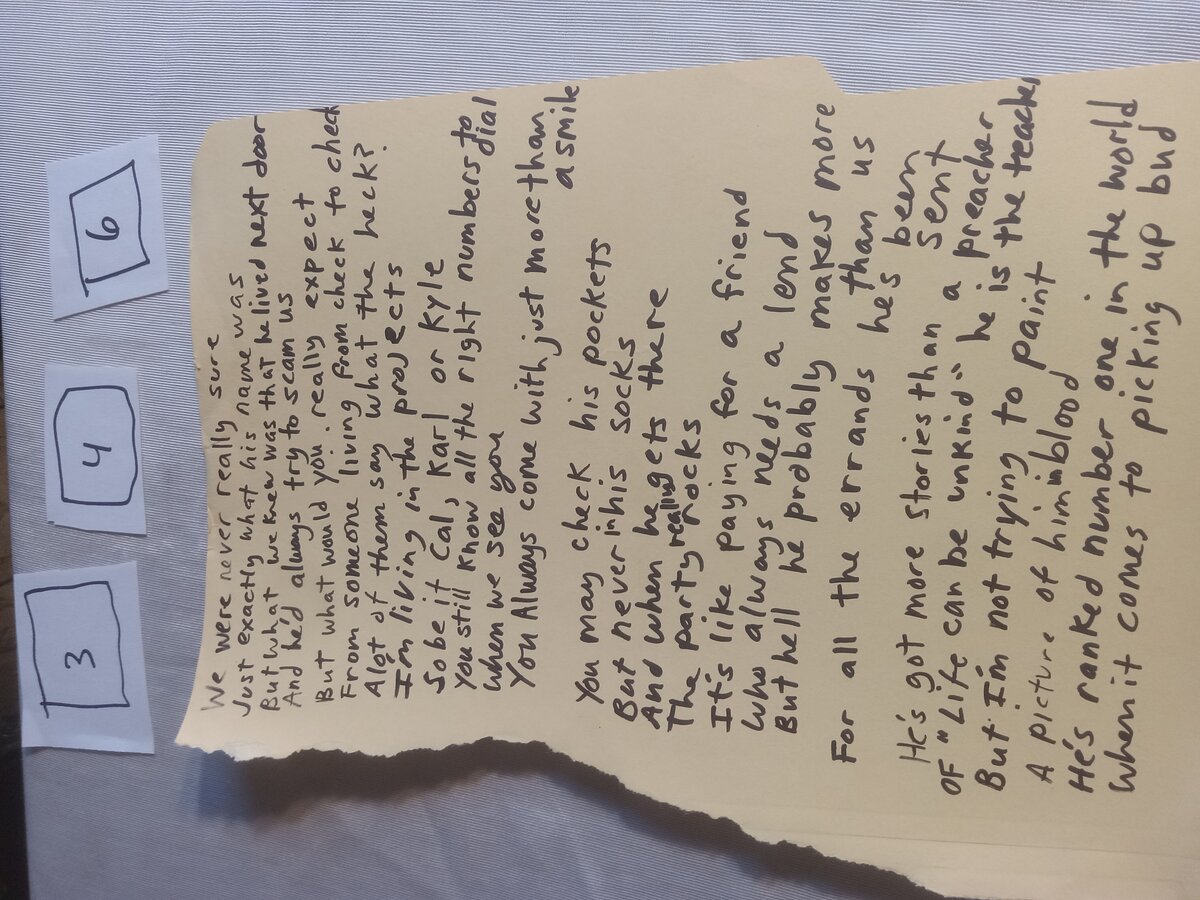 3
4
6
We were never really sure
Just exactly what his name was
But what we knew was that he lived next door
And he'd always try to scam us
But what would you really expect
From someone living from check to check
Alot of them say what the heck?
I'm living in the projects
So be it Cal, Karl or Kyle
You still know all the right numbers to dial
When we see you
You Always come with just more than a smile
You may check his pockets
But never in his socks
And when he gets there
The party really rocks
It's like paying for a friend
Who always needs a lend
But hell he probably makes more than us
For all the errands he's been sent
He's got more stories than a preacher
OF "Life can be unkind" he is the teacher
But I'm not trying to paint
A picture of him in blood
He's ranked number one in the world
When it comes to picking up bud